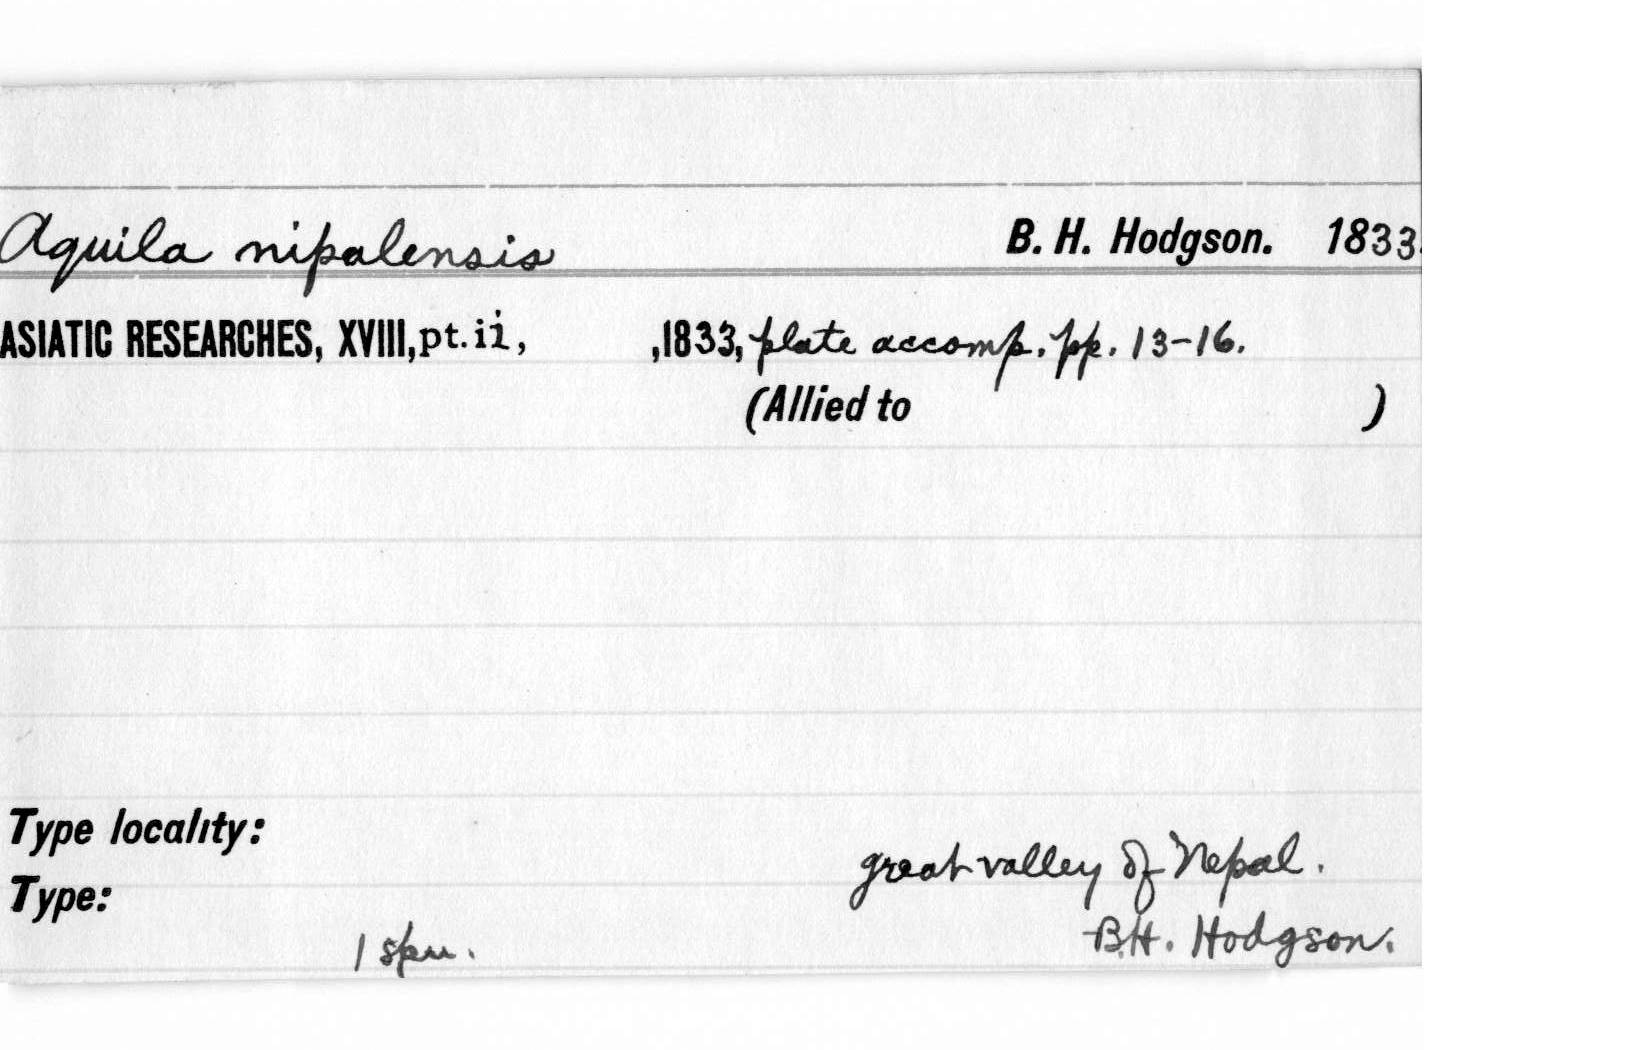 Aquila nipalensis B. H. Hodgson. 1833.
ASIATIC RESEARCHES, XVIII, pt. ii, ,1833, plate accomp. pp. 13-16.
(Allied to )
Type locality:
great valley of Nepal.
Type:
B.H. Hodgson.
1 spm.